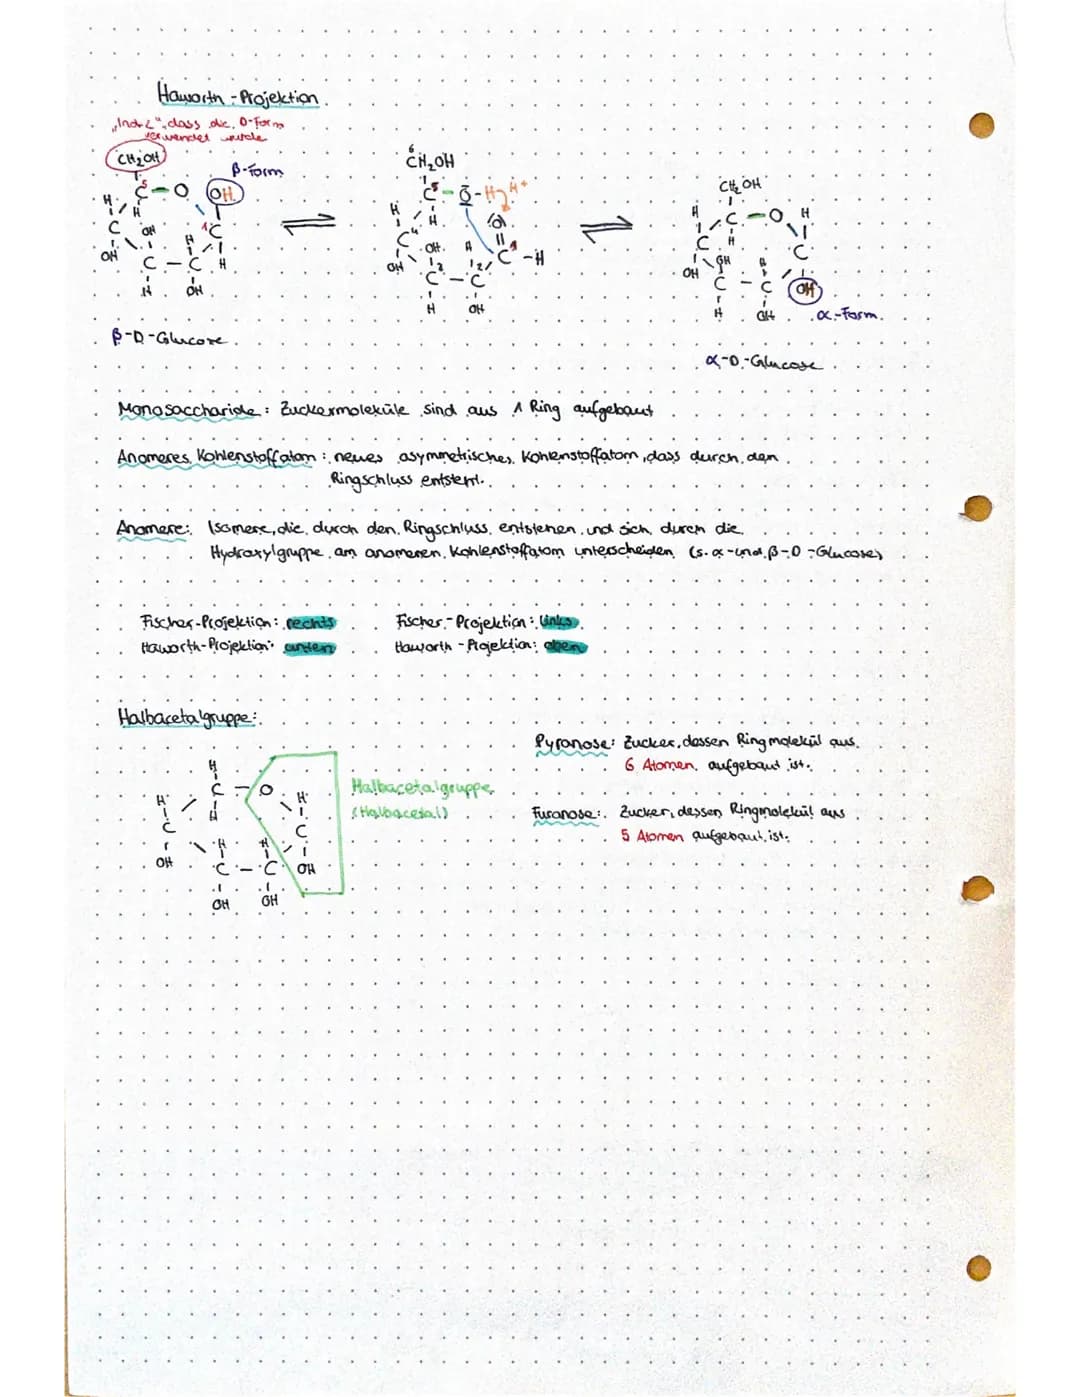 Haworth-Projektion
"Indiz", dass die D-Form
verwendet wurde
CH₂OH
β-Form
5
C-O
OH
H
H
C
OH
H
1C
OH
C-C
H
H
OH
β-D-Glucose
6
CH₂OH
5
C-O-H
H+
H
H
O
C4
OH
H
C1-H
OH
C-C
2
H
OH
CH₂OH
H
C-O
H
C
H
C
OH
OH
H
C-C
OH
H
OH
α-Form
α-D-Glucose
Monosaccharide: Zuckermoleküle sind aus 1 Ring aufgebaut
Anomeres Kohlenstoffatom: neues asymmetrisches Kohlenstoffatom, dass durch den
Ringschluss entsteht.
Anomere: Isomere, die durch den Ringschluss entstehen und sich durch die
Hydroxylgruppe am anomeren Kohlenstoffatom unterscheiden (s. α-und β-D-Glucose)
Fischer-Projektion: rechts
Haworth-Projektion: unten
Fischer-Projektion: links
Haworth-Projektion: oben
Halbacetalgruppe:
H
C-O
H
H
H
C
C
OH
H
H
C-C
OH
OH
OH
Halbacetalgruppe
(Halbacetal)
Pyranose: Zucker, dessen Ringmolekül aus
6 Atomen aufgebaut ist.
Furanose: Zucker, dessen Ringmolekül aus
5 Atomen aufgebaut ist.